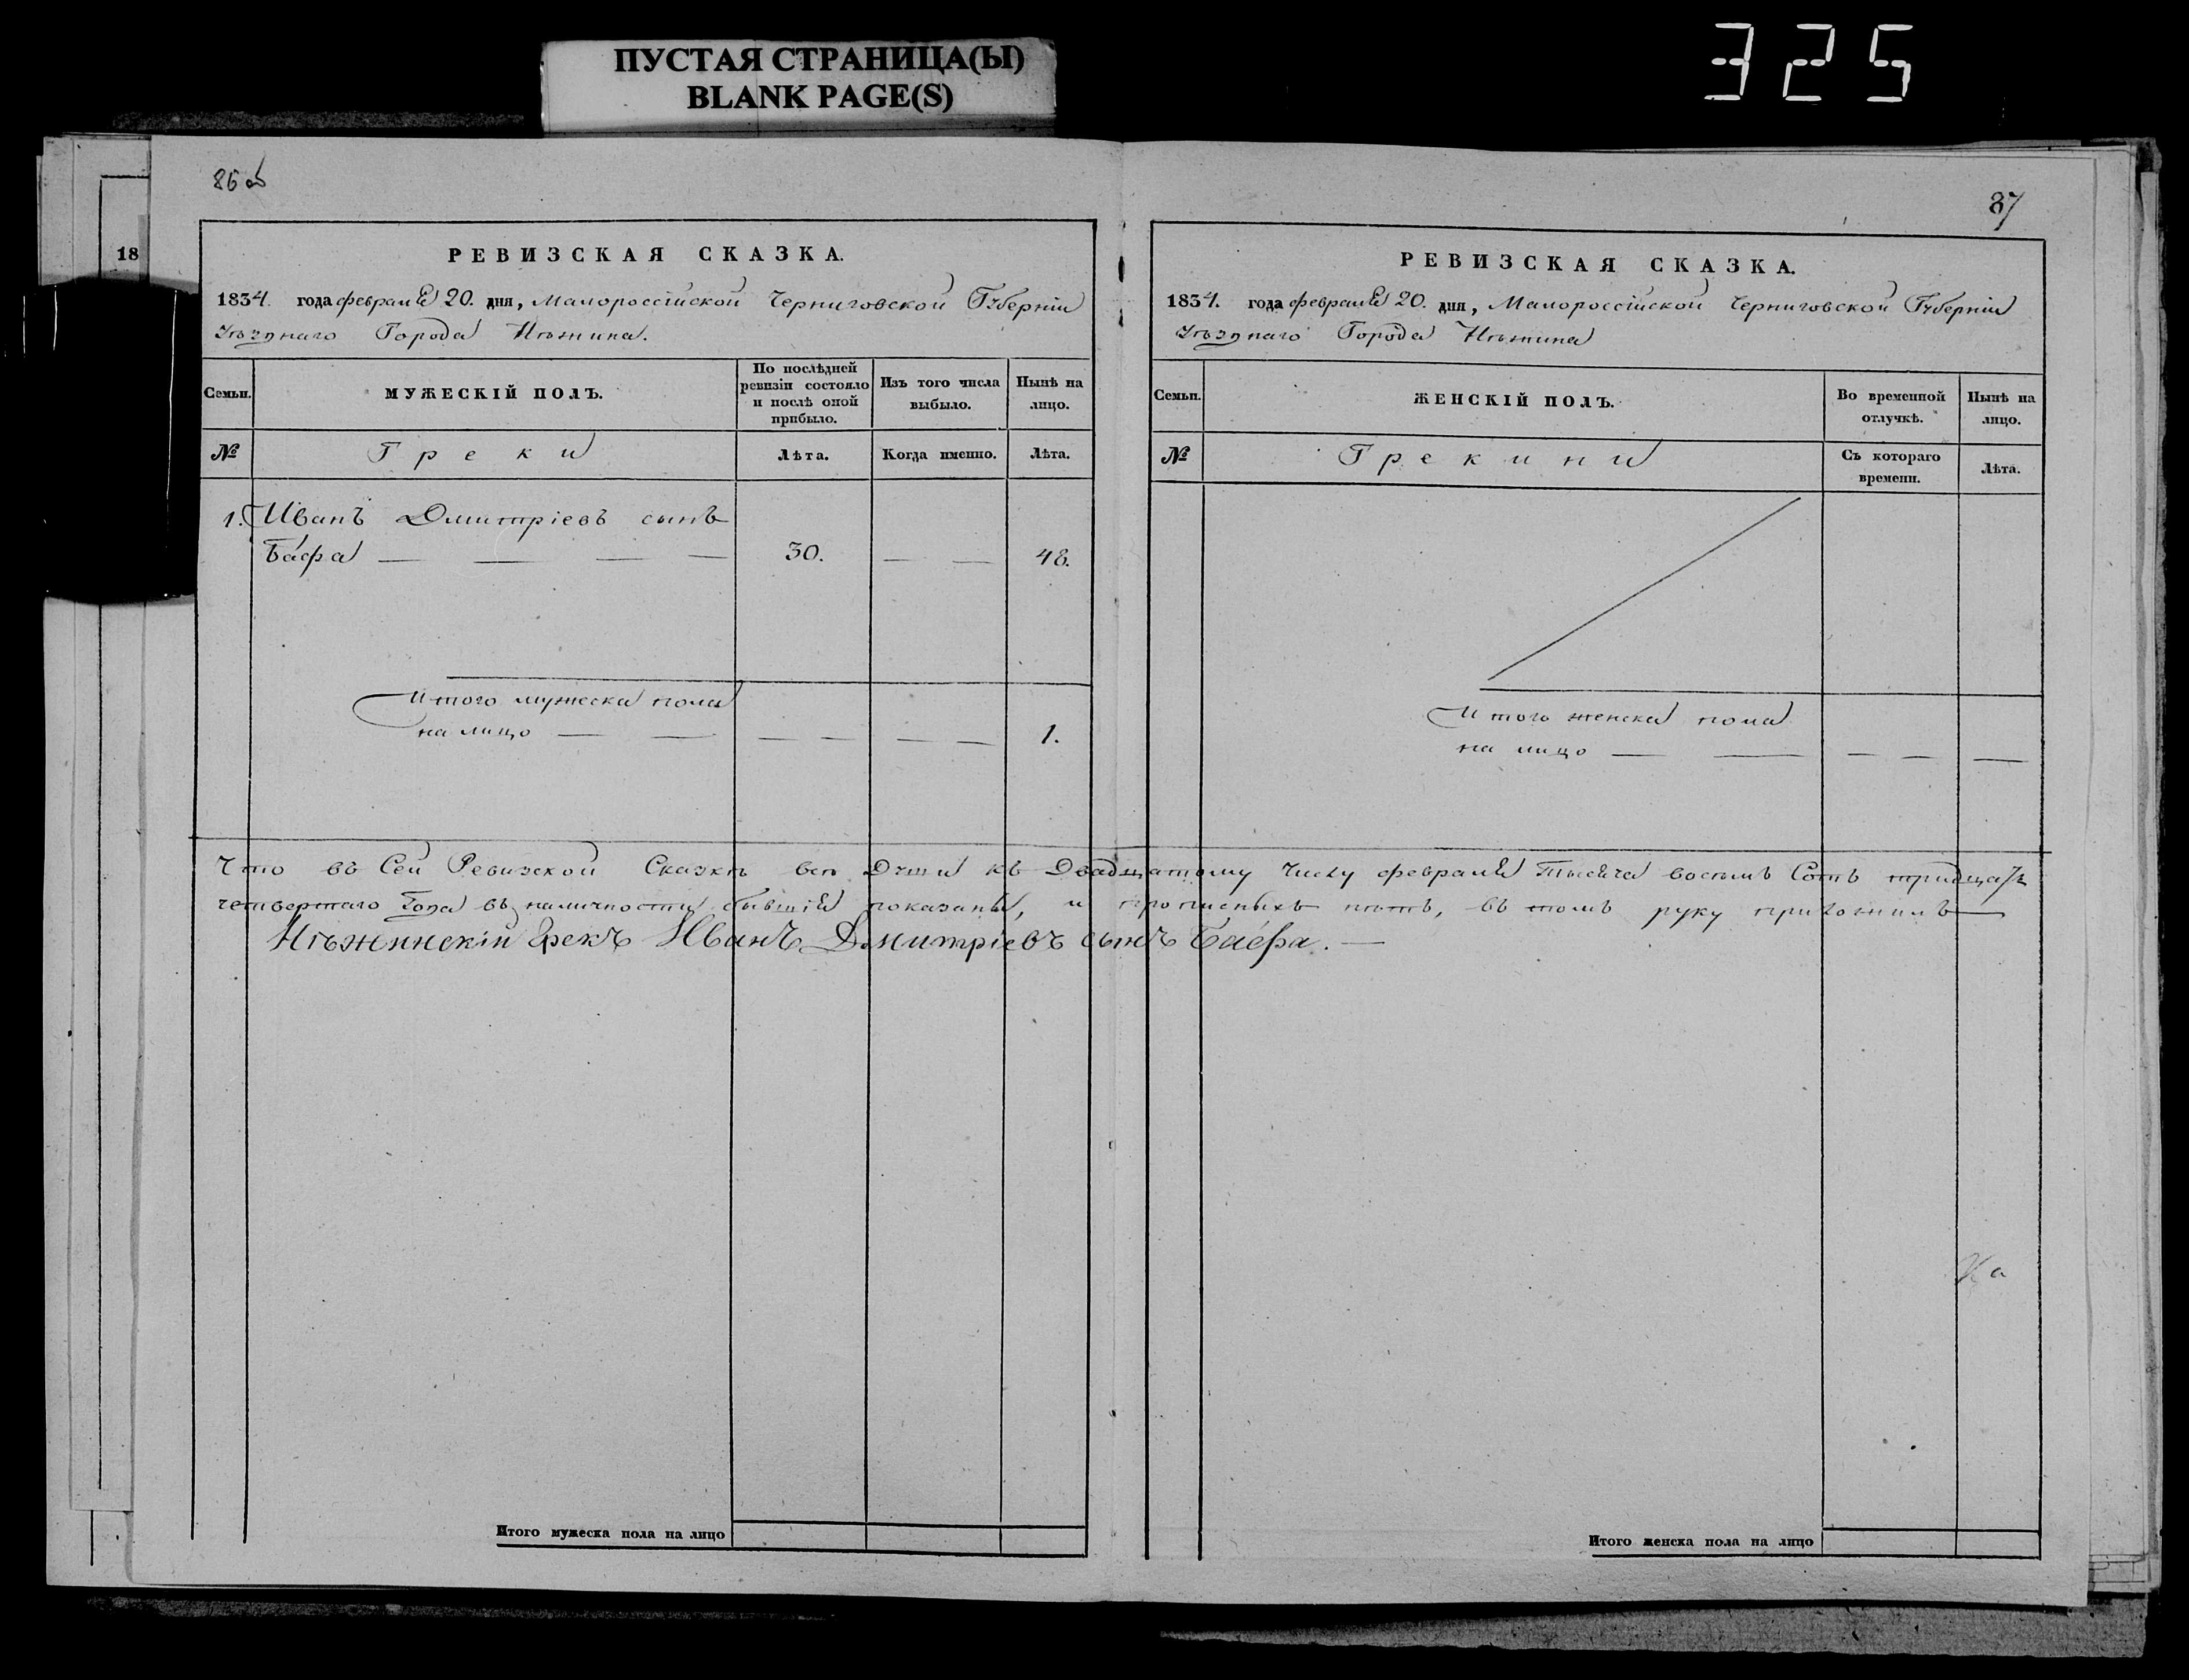 ПУСТАЯ СТРАНИЦА(Ы)
BLANK PAGE(S)
325
86 об
18
РЕВИЗСКАЯ СКАЗКА.
1834. года февраля 20. дня, Малороссійской Черниговской Губерніи
уѣзднаго Города Нѣжина.
Семьи.
МУЖЕСКІЙ ПОЛЪ.
По послѣдней ревизіи состояло и послѣ оной прибыло.
Изъ того числа выбыло.
Нынѣ на лицо.
№
Греки
Лѣта.
Когда именно.
Лѣта.
1. Иванъ Дмитріевъ сынъ
Баефа — — — — 30. — — 48.
Итого мужеска пола
на лицо — — — — — — — 1.
87
РЕВИЗСКАЯ СКАЗКА.
1834. года февраля 20. дня, Малороссійской Черниговской Губерніи
уѣзднаго Города Нѣжина
Семьи.
ЖЕНСКІЙ ПОЛЪ.
Во временной отлучкѣ.
Нынѣ на лицо.
№
Грекини
Съ котораго времени.
Лѣта.
Итого женска пола
на лицо — — — — —
Что въ Сей Ревизской Сказкѣ всѣ Души къ Двадцатому Числу февраля Тысяча восемь Сотъ тридцать
четвертаго Года въ наличности бывшія показаны, и прописныхъ нѣтъ, въ томъ руку приложилъ —
Нѣжинскій Грекъ Иванъ Дмитріевъ сынъ Баефа. —
Ка
Итого мужеска пола на лицо
Итого женска пола на лицо